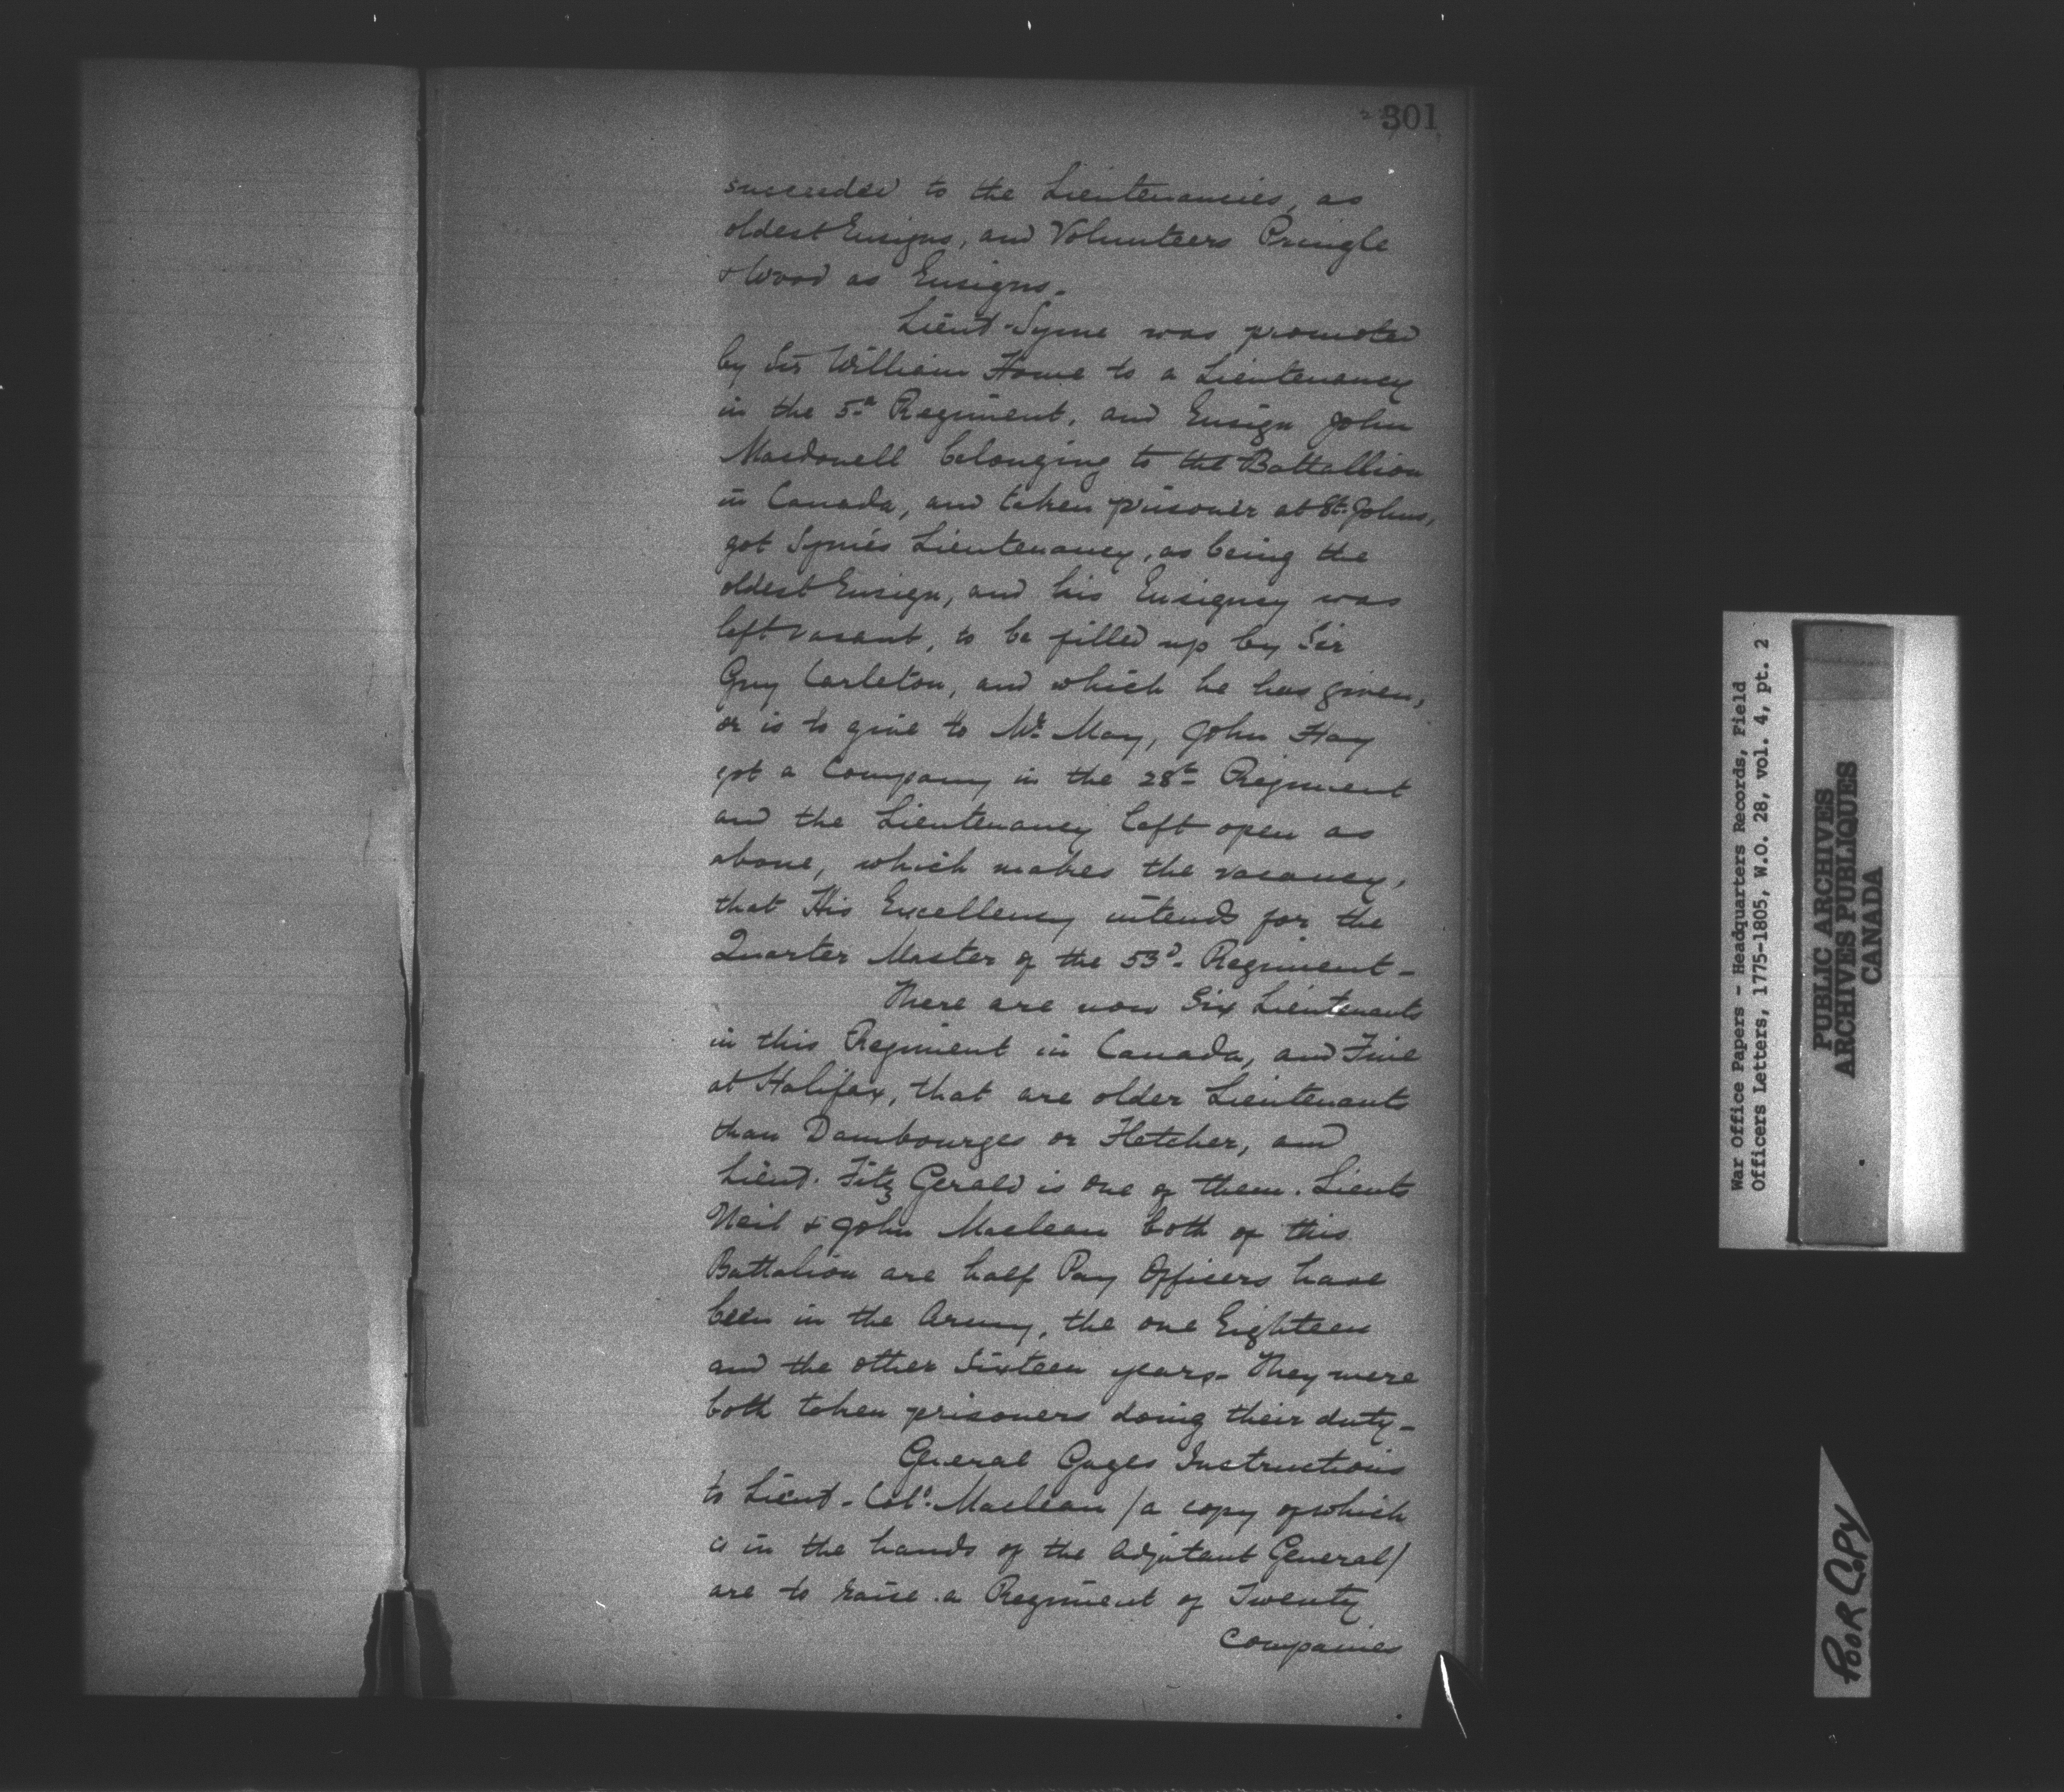 301
succeeded to the Lieutenancies, as
oldest Ensigns, and Volunteers Pringle
& Wood as Ensigns.
Lieut. Syme was promoted
by Sir William Howe to a Lieutenancy
in the 5th Regiment, and Ensign John
Macdonell belonging to the Battallion
in Canada, and taken prisoner at St. Johns,
got Syme's Lieutenancy, as being the
oldest Ensign, and his Ensigncy was
left vacant, to be filled up by Sir
Guy Carleton, and which he has given,
or is to give to Mr. May, John Hay
got a Company in the 28th Regiment
and the Lieutenancy left open as
above, which makes the vacancy,
that His Excellency intends for the
Quarter Master of the 53d. Regiment -
There are now Six Lieutenants
in this Regiment in Canada, and Five
at Halifax, that are older Lieutenants
than Dambourges or Fletcher, and
Lieut. Fitz Gerald is one of them. Lieuts
Neil & John Maclean both of this
Battalion are half Pay Officers have
been in the Army, the one Eighteen
and the other Sixteen years - They were
both taken prisoners doing their duty -
General Gages Instructions
to Lieut. Col. Maclean / a copy of which
is in the hands of the Adjutant General /
are to raise a Regiment of Twenty
Companies
War Office Papers - Headquarters Records, Field
Officers Letters, 1775-1805, W.O. 28, vol. 4, pt. 2
PUBLIC ARCHIVES
ARCHIVES PUBLIQUES
CANADA
POOR COPY